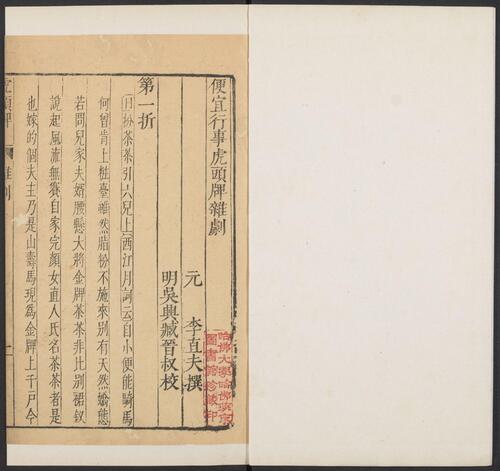 便宜行事虎頭牌雜劇
元 李直夫撰
明吳興臧晉叔校
第一折
旦扮茶茶引六兒上西江月詞云自小便能騎馬
何曾肯上粧臺雖然脂粉不施來別有天然嬌態
若問兒家夫婿腰懸大將金牌茶茶非比別裙釵
說起風流無賽自家完顏女直人氏名茶茶者是
也嫁的個夫主乃是山壽馬現為金牌上千戶今
虎頭牌 雜劇 一
哈佛大學哈佛燕京
圖書館珍藏印